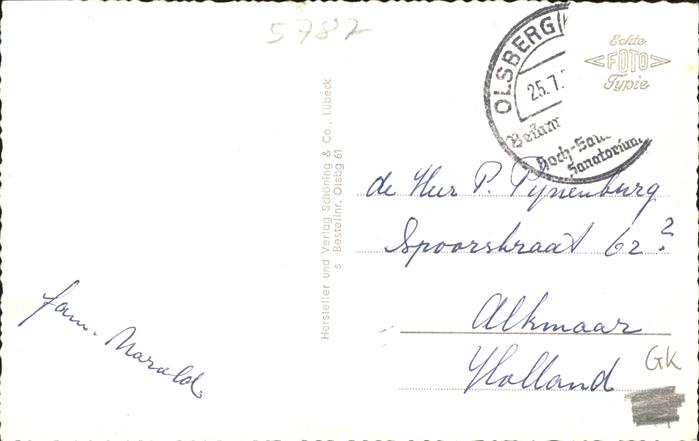 5782
OLSBERG
25.7.
Hoch-
Sanatorium
Echte
FOTO
Typie
Hersteller und Verlag Schöning & Co., Lübeck
s Bestellnr. Olsbg 61
de Heer P. Pijnenburg
Spoorstraat 62?
Alkmaar
Holland
GK
fam.